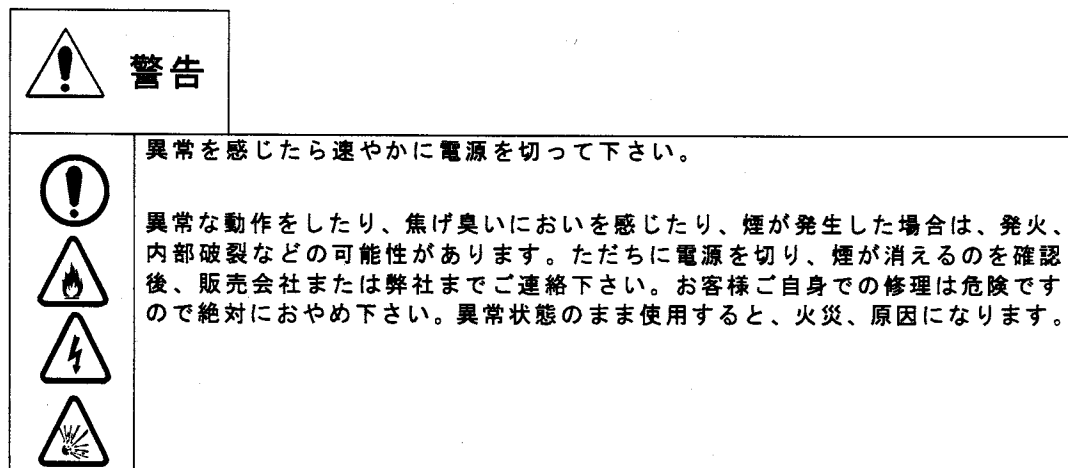 警告
異常を感じたら速やかに電源を切って下さい。
異常な動作をしたり、焦げ臭いにおいを感じたり、煙が発生した場合は、発火、
内部破裂などの可能性があります。ただちに電源を切り、煙が消えるのを確認
後、販売会社または弊社までご連絡下さい。お客様ご自身での修理は危険です
ので絶対におやめ下さい。異常状態のまま使用すると、火災、原因になります。